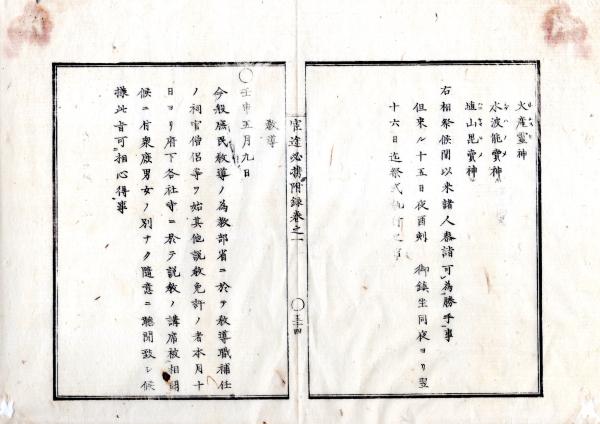 火産霊神
水波能賣神
埴山毘賣神
右相祭候間以来諸人参詣可為勝手事
但来ル十五日夜酉刻 御鎮坐同夜ヨリ翌
十六日迄祭式執行之事
官途必携附録巻之一
○三十四
教導
○壬申五月九日
今般庶民教導ノ為教部省ニ於テ教導職補任
ノ祠官僧侶等ヲ始其他説教免許ノ者本月十
日ヨリ府下各社寺ニ於テ説教ノ講席被相開
候ニ付衆庶男女ノ別ナク随意ニ聴聞致シ候
様此旨可相心得事